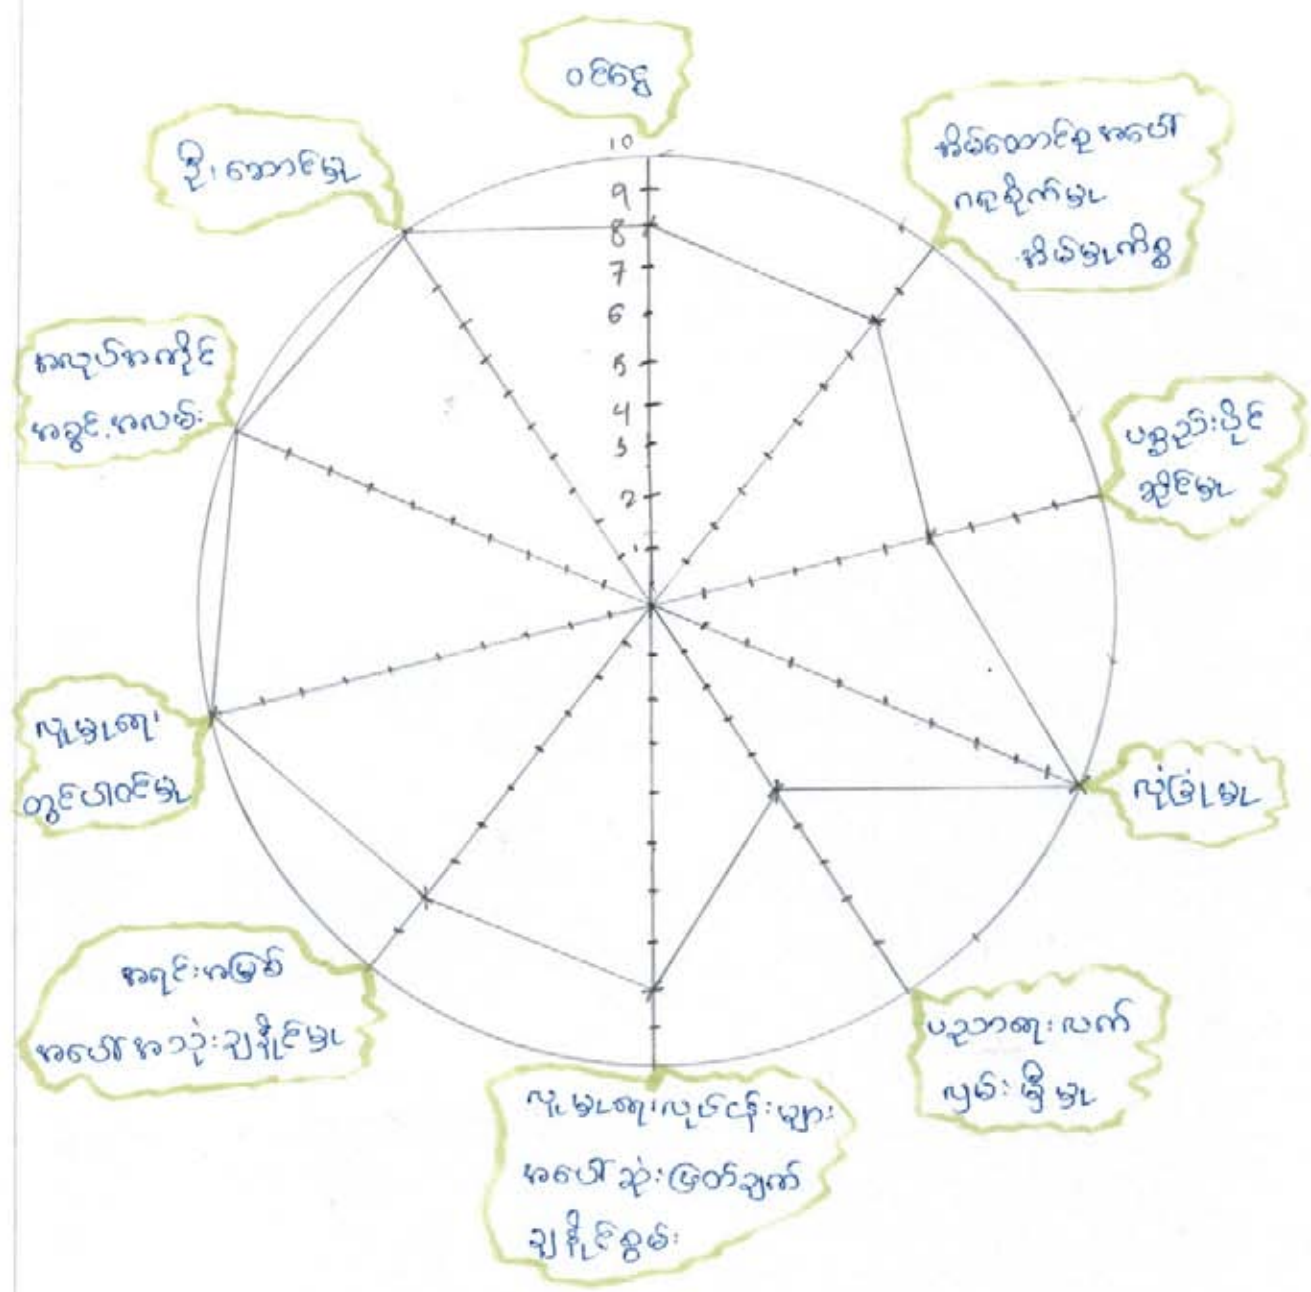 ဝင်ငွေ
10
9
8
7
6
5
4
3
2
1
အိမ်ထောင်စုအပေါ်
ဂရုစိုက်မှု
အိမ်မှုကိစ္စ
ပစ္စည်းပိုင်
ဆိုင်မှု
လုံခြုံမှု
ပညာရေးလက်
လှမ်းမှီမှု
လူမှုရေးလုပ်ငန်းများ
အပေါ်ဆုံးဖြတ်ချက်
ချနိုင်စွမ်း
အရင်းအမြစ်
အပေါ်အသုံးချနိုင်မှု
လူမှုရေး
တွင်ပါဝင်မှု
အလုပ်အကိုင်
အခွင့်အလမ်း
ဦးဆောင်မှု